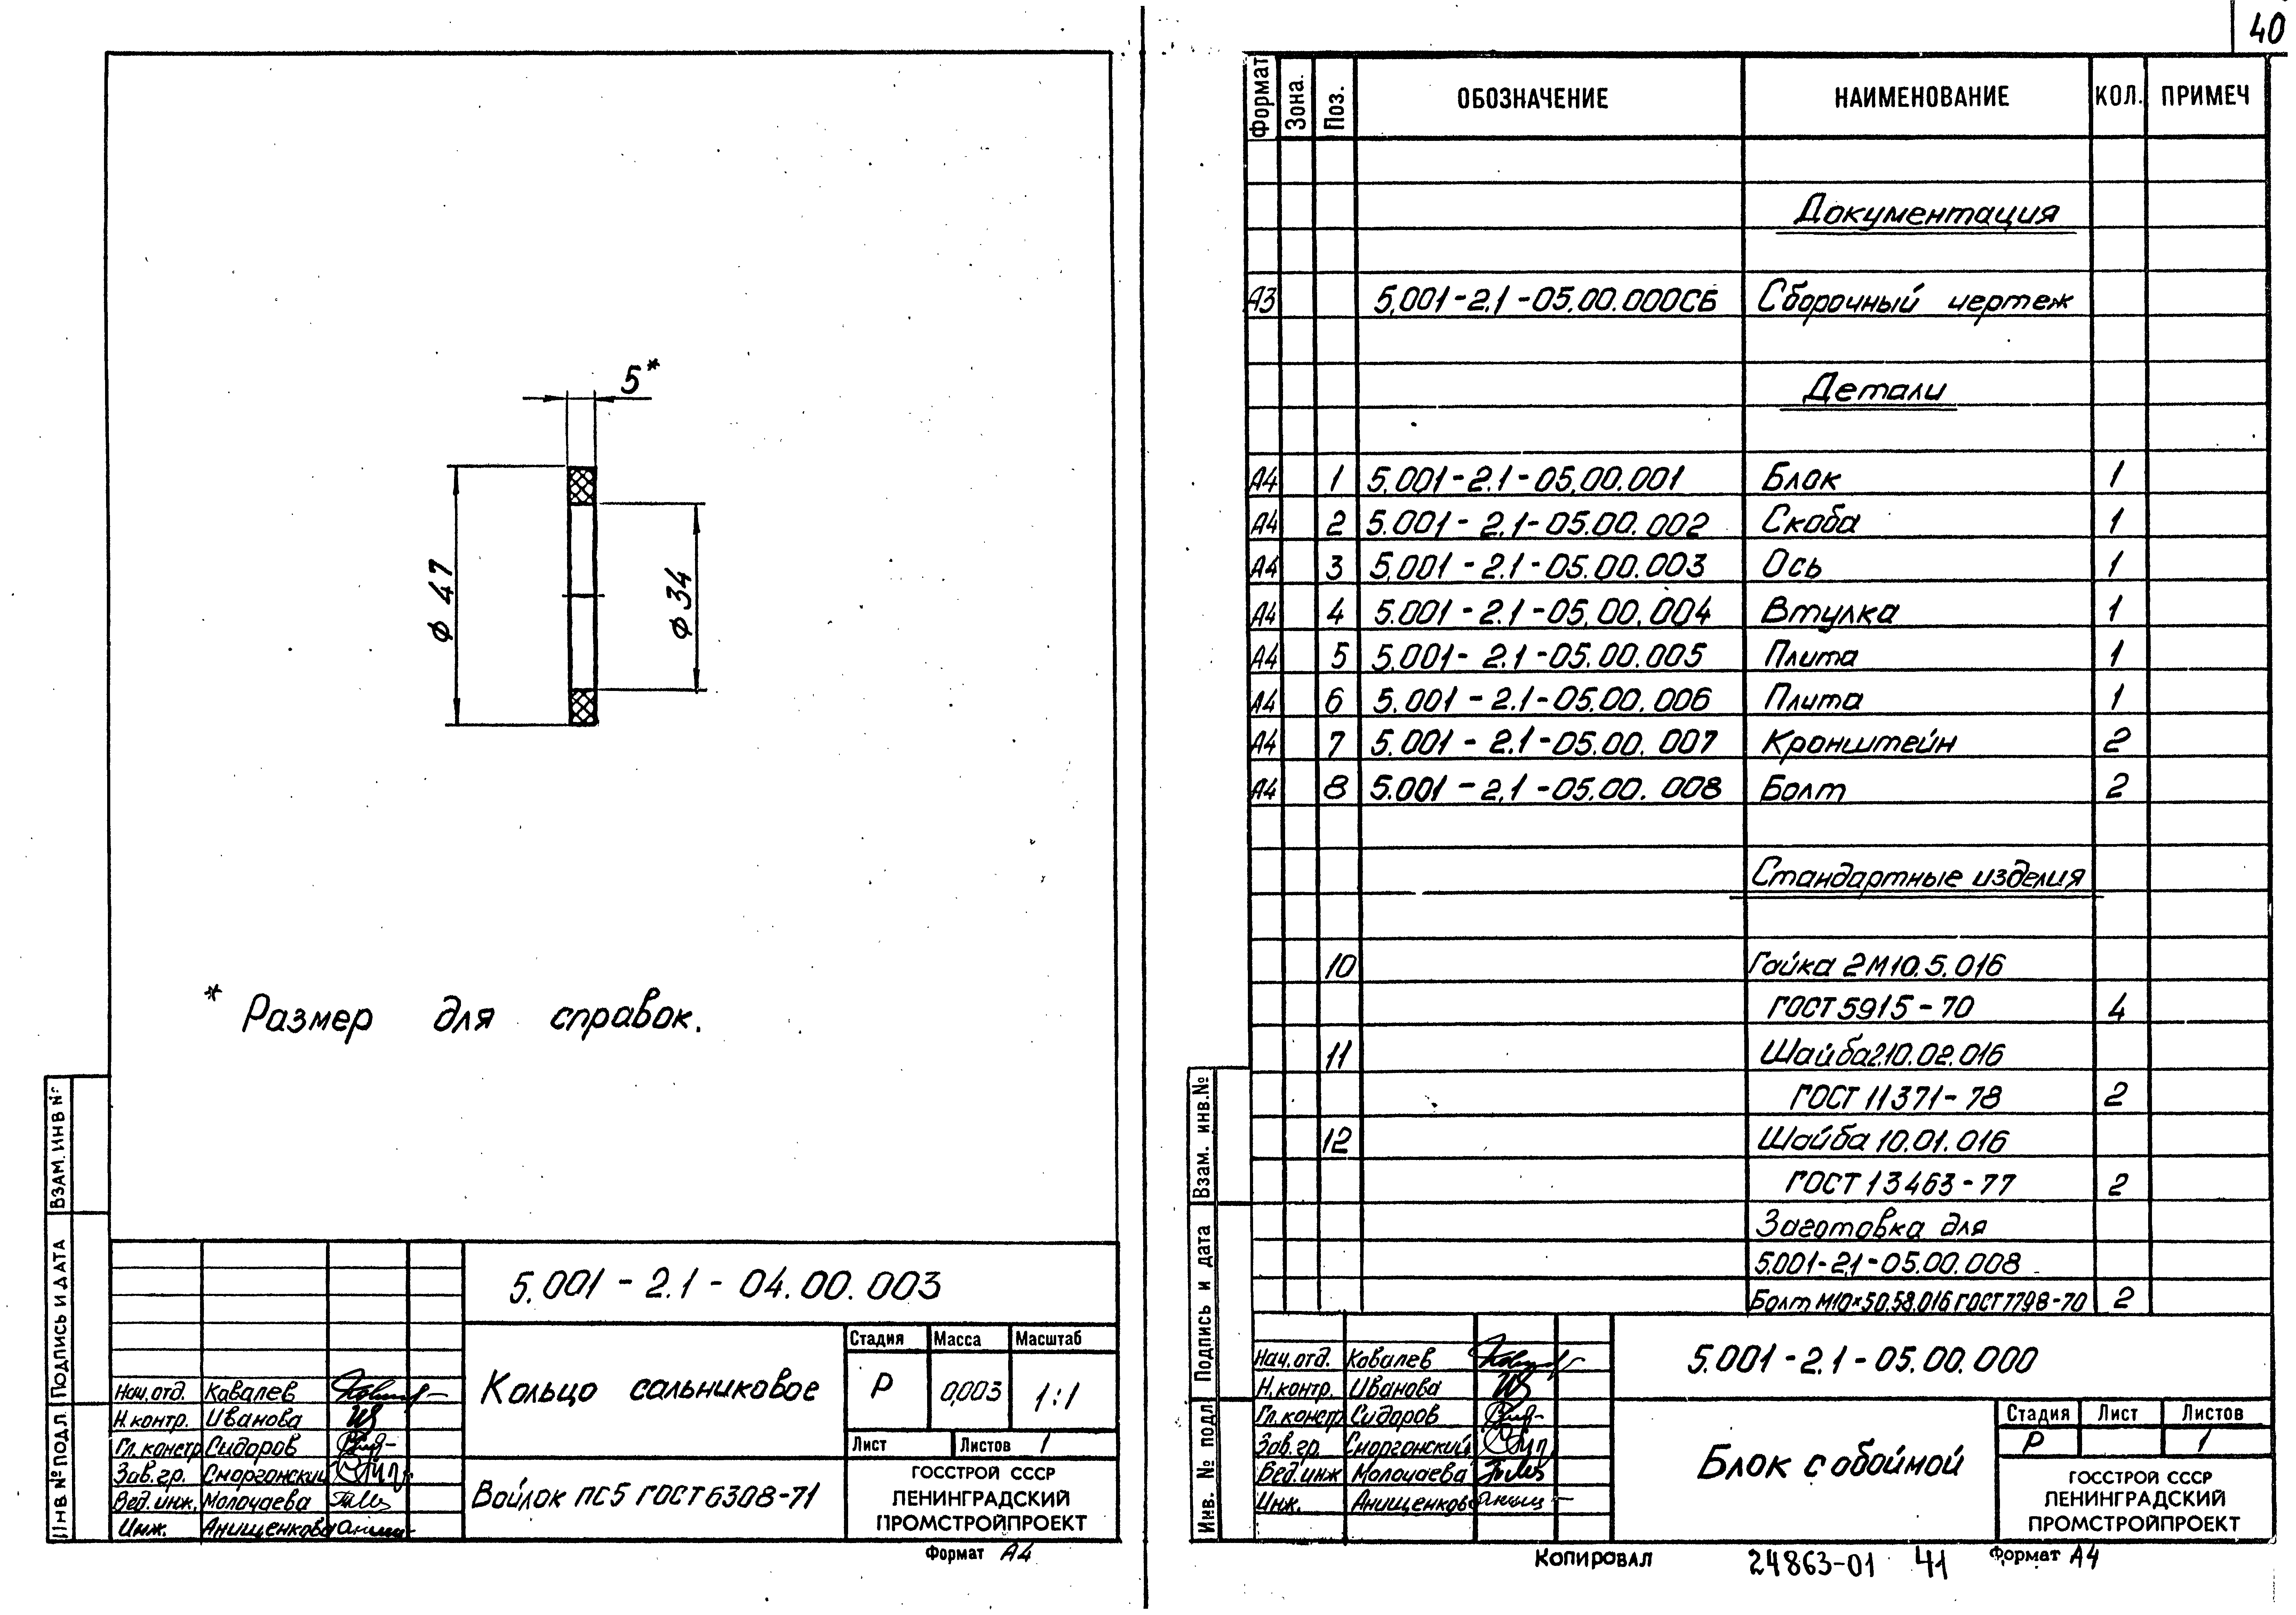 40
5*
⌀ 47
⌀ 34
* Размер для справок.
ВЗАМ. ИНВ №
ПОДПИСЬ И ДАТА
ИНВ № ПОДЛ.
5.001 - 2.1 - 04.00.003
Кольцо сальниковое
Стадия Масса Масштаб
Р 0,003 1:1
Лист Листов 1
Нач. отд. Ковалев
Н контр. Иванова
Гл. констр. Сидоров
Зав. гр. Сморгонский
Вед. инж. Молочаева
Инж. Анищенкова
Войлок ПС5 ГОСТ 6308-71
ГОССТРОЙ СССР
ЛЕНИНГРАДСКИЙ
ПРОМСТРОЙПРОЕКТ
Формат А4
Формат Зона. Поз. ОБОЗНАЧЕНИЕ НАИМЕНОВАНИЕ КОЛ. ПРИМЕЧ
Документация
А3 5.001-2.1-05.00.000СБ Сборочный чертеж
Детали
А4 1 5.001-2.1-05.00.001 Блок 1
А4 2 5.001-2.1-05.00.002 Скоба 1
А4 3 5.001-2.1-05.00.003 Ось 1
А4 4 5.001-2.1-05.00.004 Втулка 1
А4 5 5.001-2.1-05.00.005 Плита 1
А4 6 5.001-2.1-05.00.006 Плита 1
А4 7 5.001-2.1-05.00.007 Кронштейн 2
А4 8 5.001-2.1-05.00.008 Болт 2
Стандартные изделия
10 Гайка 2М10.5.016
ГОСТ 5915-70 4
11 Шайба 2.10.02.016
ГОСТ 11371-78 2
12 Шайба 10.01.016
ГОСТ 13463-77 2
Заготовка для
5.001-2.1-05.00.008
Болт М10×50.58.016 ГОСТ 7798-70 2
Взам. инв.№
Подпись и дата
Инв. № подл.
5.001-2.1-05.00.000
Нач. отд. Ковалев
Н. контр. Иванова
Гл. констр Сидоров
Зав. гр. Сморгонский
Вед. инж Молочаева
Инж. Анищенкова
Блок с обоймой
Стадия Лист Листов
Р 1
ГОССТРОЙ СССР
ЛЕНИНГРАДСКИЙ
ПРОМСТРОЙПРОЕКТ
Копировал 24863-01 41 Формат А4